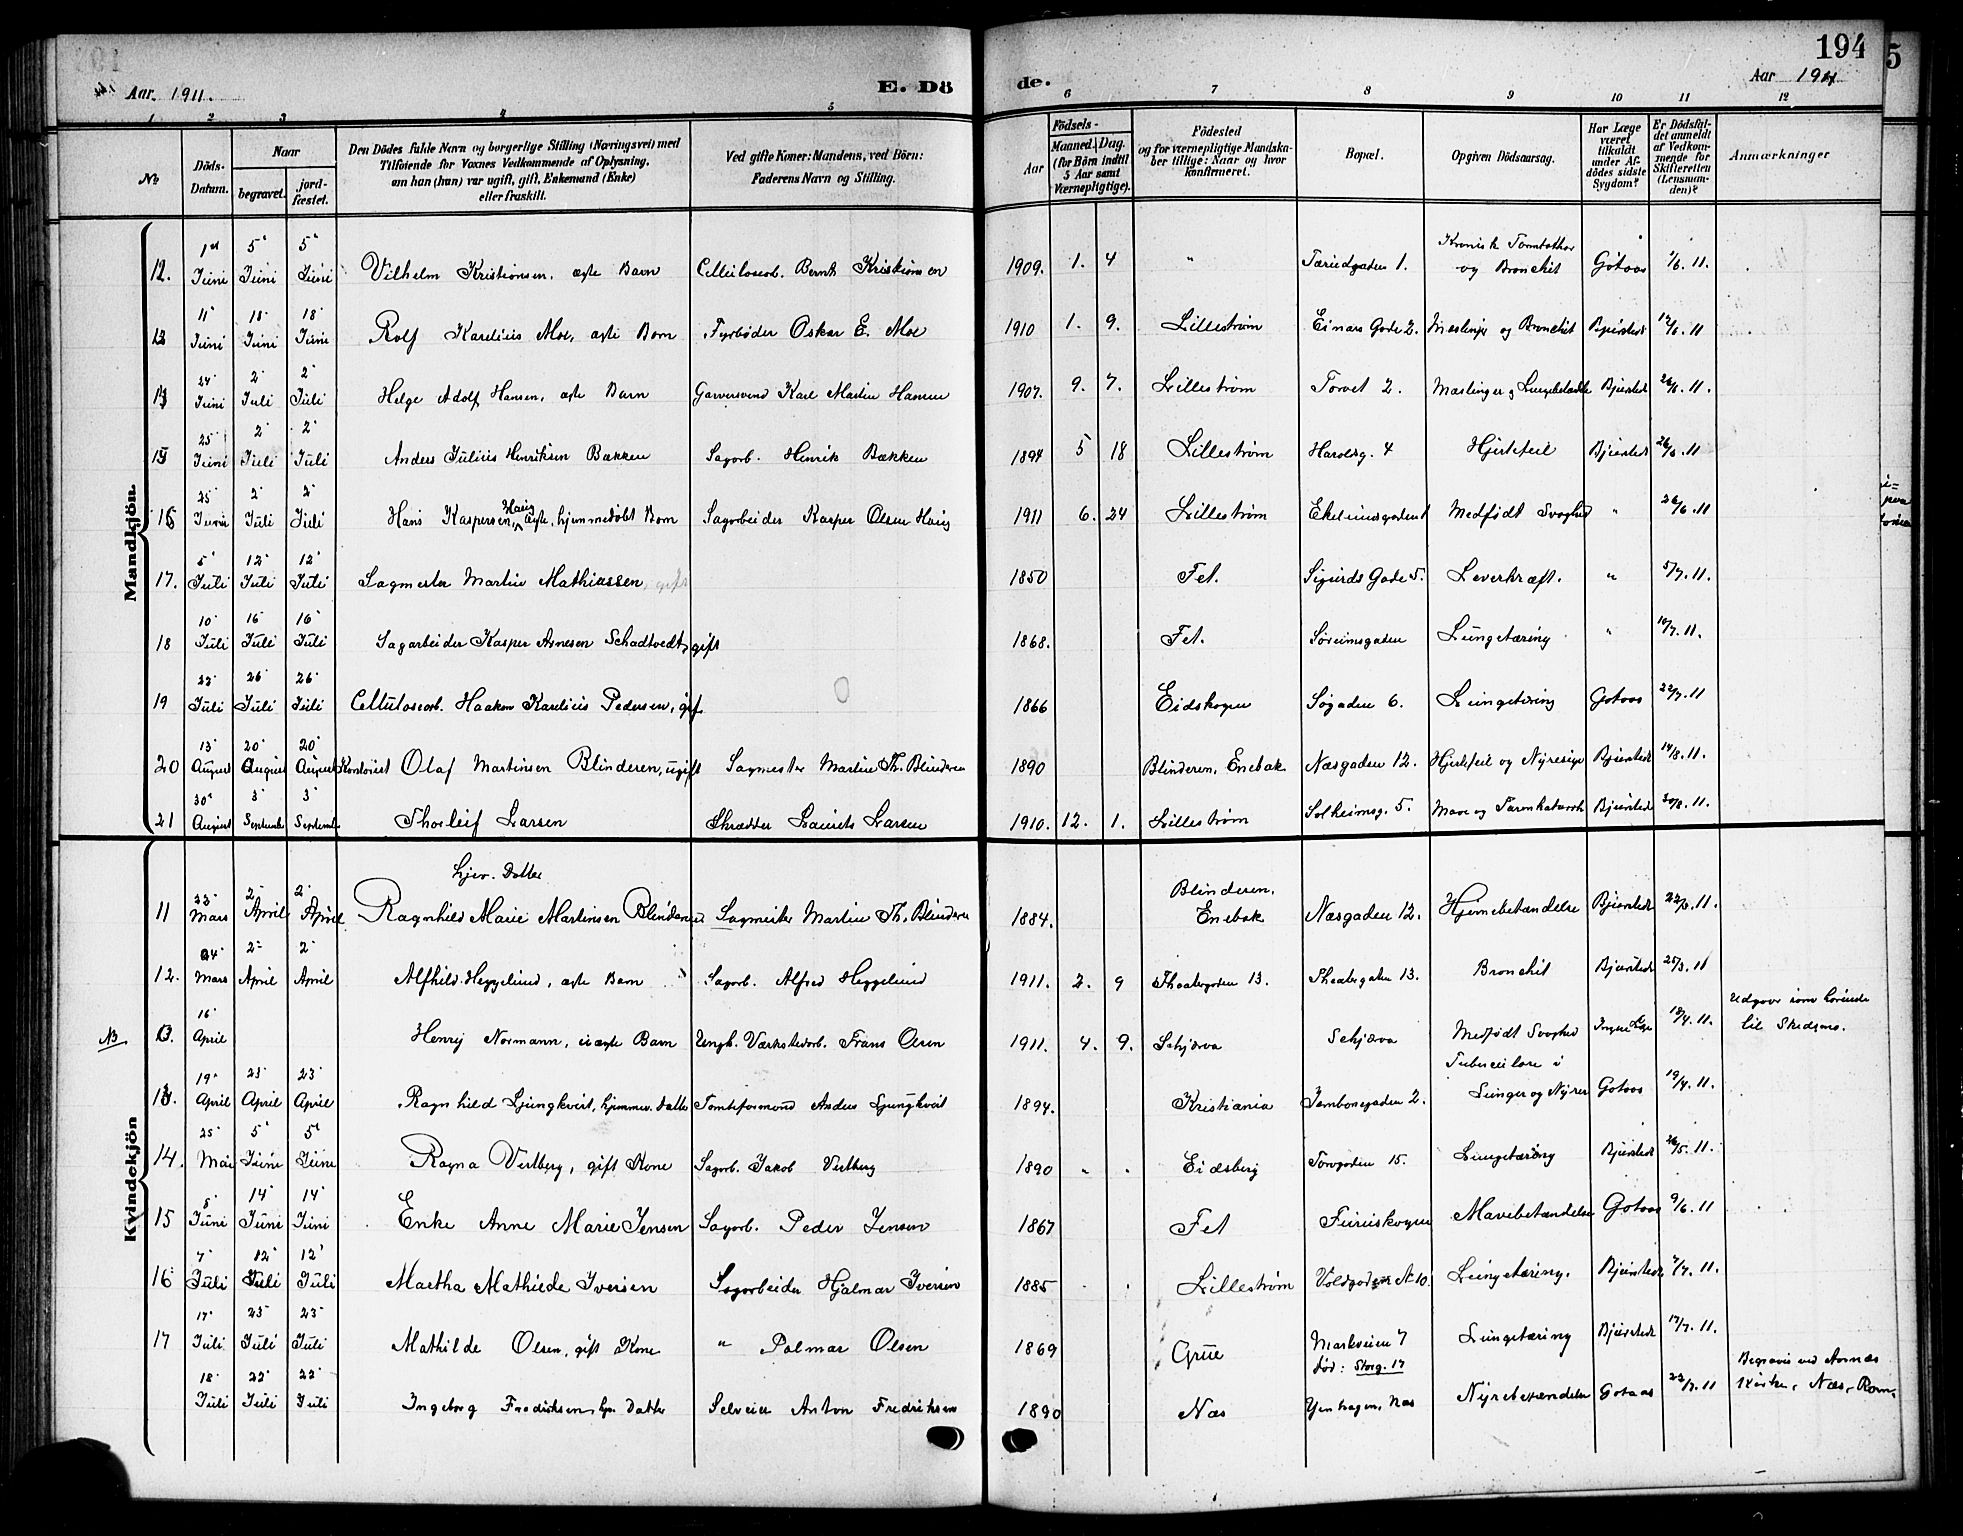 194
5
Aar 1911.
E. Dö
de.
Aar 1911
1 2 3 4 5 6 7 8 9 10 11 12
No
Döds-Datum.
Naar
begravet.
jord-fæstet.
Den Dödes fulde Navn og borgerlige Stilling (Næringsvei) med
Tilføiende for Voxnes Vedkommende af Oplysning,
om han (hun) var ugift, gift, Enkemand (Enke)
eller fraskilt.
Ved gifte Koner: Mandens, ved Börn:
Faderens Navn og Stilling.
Aar
Födsels-
Maaned. Dag.
(for Börn indtil
5 Aar samt
Værnepligtige).
Födested
og for værnepligtige Mandska-
ber tillige: Naar og hvor
konfirmeret.
Bopæl.
Opgiven Dödsaarsag.
Har Læge
været
tilkaldt
under Af-
dödes sidste
Sygdom?
Er Dödsfal-
det anmeldt
af Vedkom-
mende for
Skifteretten
(Lensman-
den)?
Anmærkninger
Mandkjön.
12. 1 Juni 5 Juni 5 Juni Vilhelm Kristiansen, ægte Barn Cellulosearb. Bernh. Kristiansen 1909. 1. 4 " 1. og Bronchit Gotaas 1/6. 11.
13 11 Juni 18 Juni 18 Juni Rolf Karelius Moe, ægte Barn Fyrbøder Oskar E. Moe 1910 1. 9. Lillestrøm Einars Gade 2. Meslinger og Bronchit Bjerstedt 12/6. 11
14 24 Juni 2 Juli 2 Juli Helge Adolf Hansen, ægte Barn Garversvend Karl Martin Hansen 1907. 9. 7. Lillestrøm Torvet 2. Mæslinger og Lungebetændelse Bjerstedt 26/6. 11.
15 25 Juni 2 Juli 2 Juli Anders Julius Henriksen Bakken Sagarb. Henrik Bakken 1894 5 18 Lillestrøm Haralsg. 4 Hjertefeil Bjerstedt 26/6. 11
16 25 Juni 2 Juli 2 Juli Hans Kaspersen Haug, ægte, hjemmedøbt Barn Sagarbeider Kasper Olsen Haug 1911 6. 24 Lillestrøm Medfødt Svaghed " 26/6. 11
17. 5 Juli 12 Juli 12 Juli Sagmester Martin Mathiassen, gift 1850 Fet. Sigurds Gade 5. Leverkræft. " 5/7. 11.
18 10 Juli 16 Juli 16 Juli Sagarbeider Kasper Arnesen Schadtvedt, gift 1868. Fet. Lungetæring " 10/7. 11.
19 22 Juli 26 Juli 26 Juli Cellulosearb. Haakon Karelius Pedersen, gift 1866 Eidskogen Søgaden 6. Lungetæring Gotaas 22/7. 11
20 13 August 20 August 20 August Kontorist Olaf Martinsen Blinderen, ugift Sagmester Martin Th. Blinderen 1890 Blinderen, Enebak Næsgaden 12. Hjertefeil og Nyresyge Bjerstedt 14/8. 11.
21 30 August 3 Septemb. 3 Septemb. Thorleif Larsen Skrædder Laurits Larsen 1910. 12. 1. Lillestrøm Solheimsg. 5. Mave og Tarmkatarrh Bjerstedt 30/8. 11.
Kvindekjön
hjev. Datter
11 22 Mars 2 April 2 April Ragnhild Marie Martinsen Blinderen Sagmester Martin Th. Blinderen 1884. Blinderen, Enebak Næsgaden 12. Hjernebetændelse Bjerstedt 22/3. 11.
12. 24 Mars 2 April 2 April Alfhild Heggelund, ægte Barn Sagarb. Alfred Heggelund 1911. 2. 9 Theatergaden 13. Theatergaden 13. Bronchit Bjerstedt 25/3. 11
NB 13. 16 April Henry Normann, uægte Barn Ungk. Værkstedarb. Frans Olsen 1911. 4. 9. Schjærva Schjærva Medfødt Svaghed Ingen Læge 18/4. 11. Udgaar som hørende til Skedsmo.
13. 19 April 23 April 23 April Ragnhild Ljungkvist, hjemmev. Datter Tomteformand Anders Ljungkvist 1894. Kristiania Jernbanegaden 2. Tuberculose i Lunger og Nyrer Gotaas 19/4. 11.
14. 25 Mai 5 Juni 5 Juni Ragna Vestberg, gift Kone Sagarb. Jakob Vestberg 1890 " " Eidsberg Torvgaden 15. Lungetæring Bjerstedt 26/5. 11.
15 8 Juni 14 Juni 14 Juni Enke Anne Marie Jensen Sagarb. Peder Jensen 1867 Fet Furuskogen Mavebetændelse Gotaas 9/6. 11
16 7 Juli 12 Juli 12 Juli Martha Mathilde Iversen Sagarbeider Hjalmar Iversen 1885 Lillestrøm Voldgaden A 10 Lungetæring. Bjerstedt 7/7. 11.
17 17 Juli 23 Juli 23 Juli Mathilde Olsen, gift Kone " Palmar Olsen 1869 Grue Markveien 7 død: Storg. 17 Lungetæring Bjerstedt 17/7. 11.
18 Juli 22 Juli 22 Juli Ingeborg Fredriksen, hjv. Datter Selveier Anton Fredriksen 1890 Næs Næs Nyrebetændelse Gotaas 22/7. 11 Begravet ved Aarnæs Kirke, Næs, Rom.